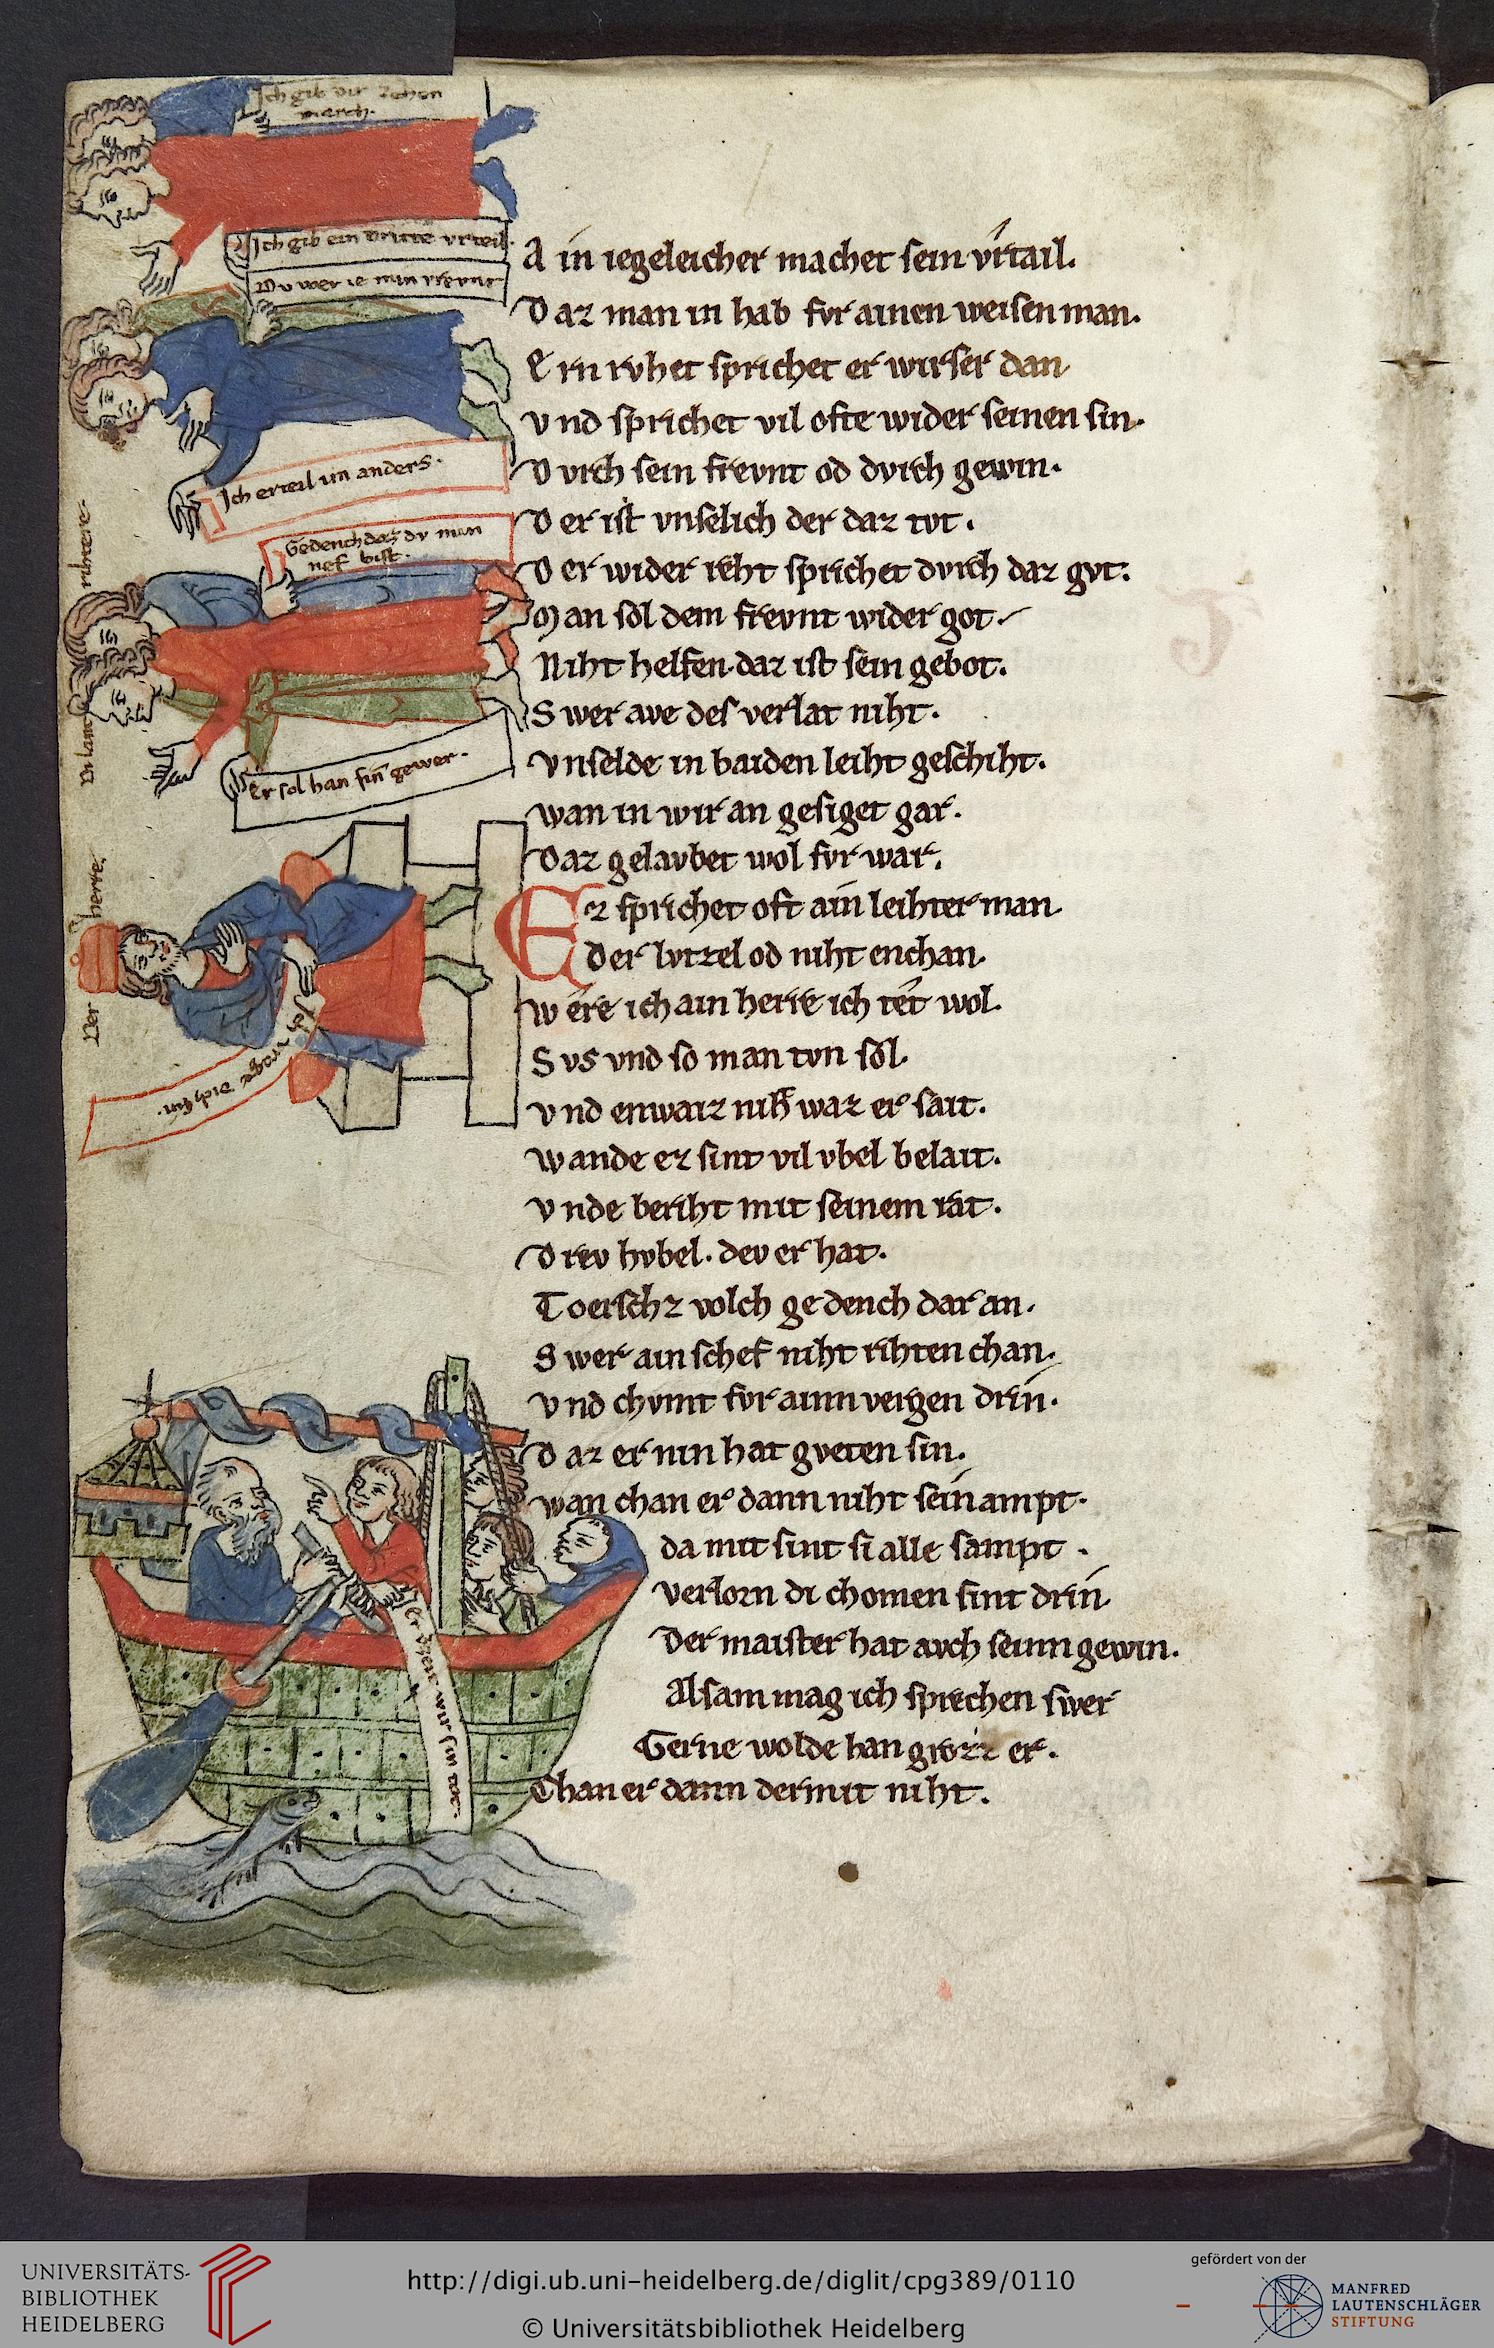 Ich gib dir zehen
march.
Ich gib ein dritte vrteil.
Dv wer ie min vrevnt
Ich erteil im anders.
Gedench daz dv min
nef bist.
Er sol han sin gewer.
Di lant rihtere.
Der herre.
Ich vrage dich sin.
A in iegeleicher machet sein vrtail.
D az man in hab fvr ainen weisen man.
E rn rvhet sprichet er wirser dan
v nd sprichet vil ofte wider seinen sin.
D vrch sein frevnt od dvrch gewin.
D er ist vnselich der daz tvt.
D er wider reht sprichet dvrch daz gvt.
M an sol dem frevnt wider got.
Niht helfen. daz ist sein gebot.
S wer ave des verlat niht.
vnselde in baiden leiht geschiht.
wan in wir an gesiget gar.
Daz gelavbet wol fvr war.
Ez sprichet oft ain leihter man.
Der lvtzel od niht enchan.
w ere ich ain herre ich tet wol.
S vs vnd so man tvn sol.
v nd enwaiz niht waz er sait.
wande ez sint vil vbel belait.
v nde beriht mit seinem rat.
D rev hvbel. dev er hat.
Toerschz volch gedench dar an.
S wer ain schef niht rihten chan.
v nd chvmt fvr ainn vergen drin.
D az er nin hat gveten sin.
wan chan er dann niht sein ampt.
da mit sint si alle sampt.
verlorn di chomen sint drin.
Der maister hat avch seinn gewin.
Alsam mag ich sprechen swer
Gerne wolde han er.
Chan er dann der mit niht.
wir sin tot.
UNIVERSITÄTS-
BIBLIOTHEK
HEIDELBERG
http://digi.ub.uni-heidelberg.de/diglit/cpg389/0110
© Universitätsbibliothek Heidelberg
gefördert von der
MANFRED
LAUTENSCHLÄGER
STIFTUNG